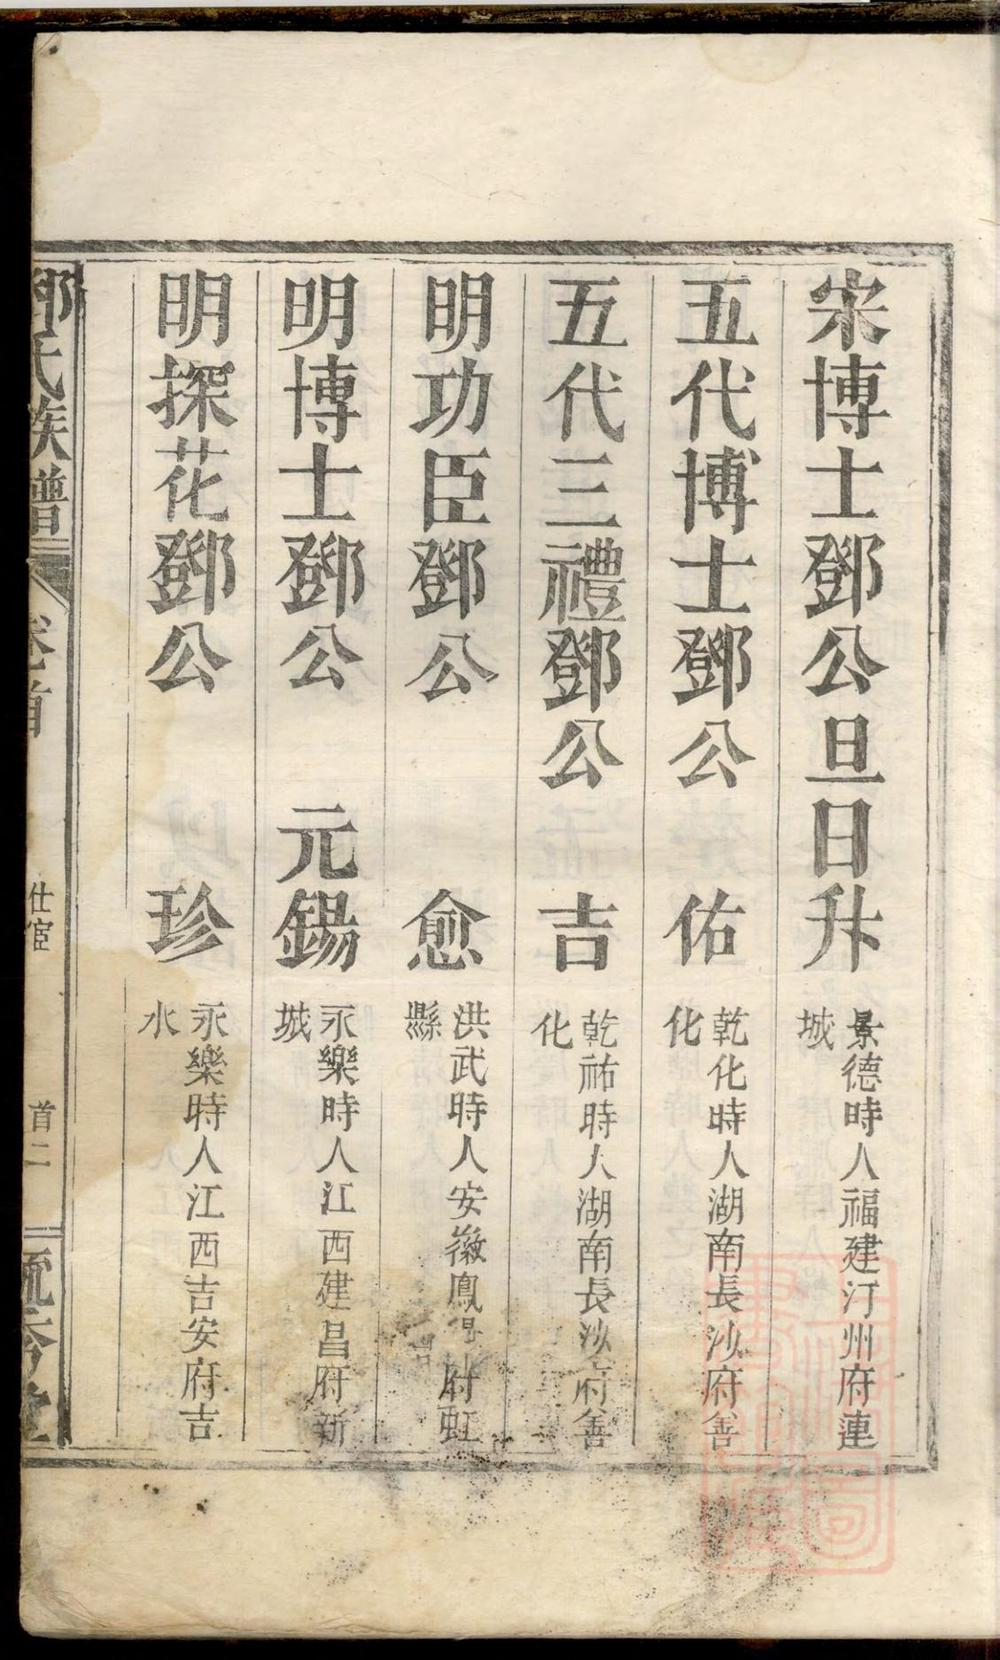 宋博士鄧公旦日升
景德時人福建汀州府連
城
五代博士鄧公佑
乾化時人湖南長沙府善
化
五代三禮鄧公吉
乾祐時人湖南長沙府善
化
明功臣鄧公愈
洪武時人安徽鳳陽府虹
縣
明博士鄧公元錫
永樂時人江西建昌府新
城
明探花鄧公珍
永樂時人江西吉安府吉
水
鄧氏族譜
卷首
仕宦
首二